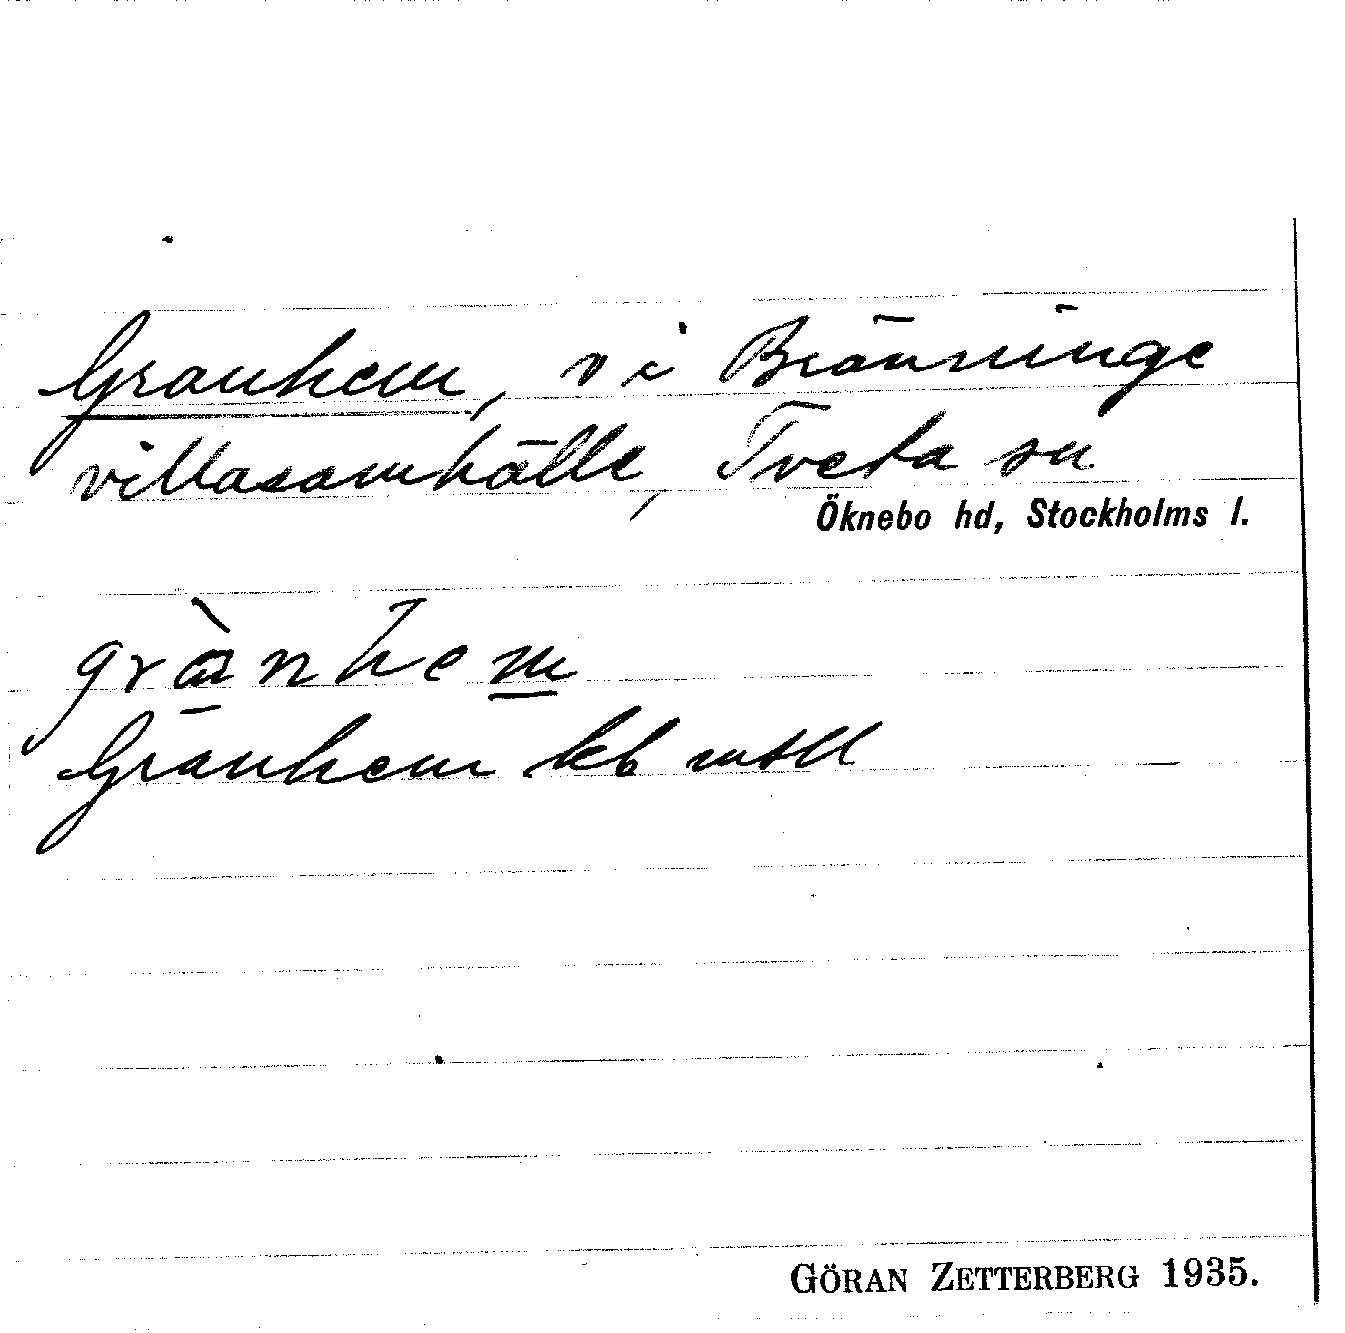 Granhem, v i Bränninge
villasamhälle, Tveta sn
Öknebo hd, Stockholms l.
grànhem
Gränhem lcb
GÖRAN ZETTERBERG 1935.